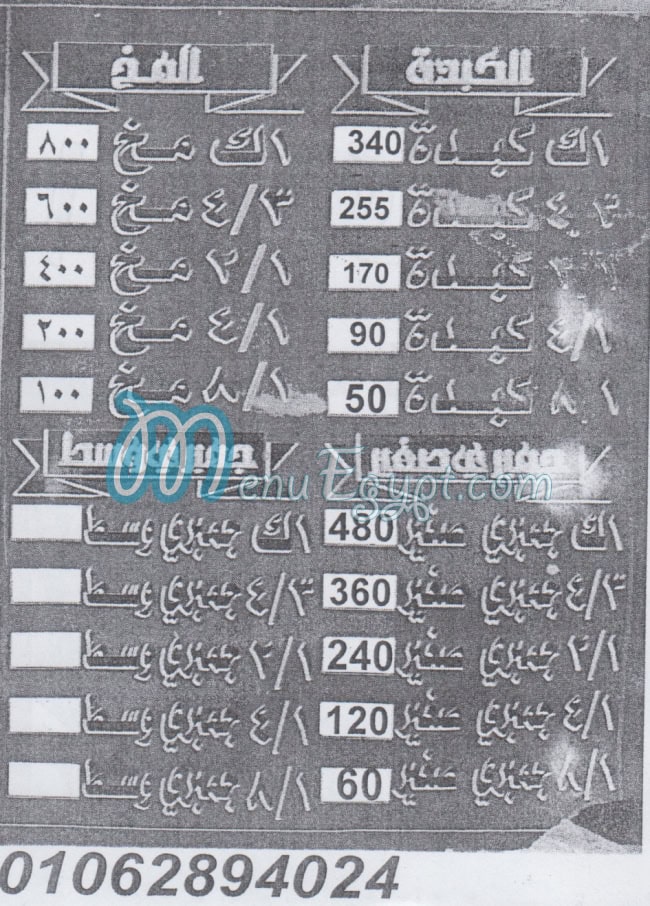 الكبدة
١ك كبدة 340
٣/٤ كبدة 255
كبدة 170
١/٤ كبدة 90
١/٨ كبدة 50
المخ
١ك مخ ٨٠٠
٣/٤ مخ ٦٠٠
١/٢ مخ ٤٠٠
١/٤ مخ ٢٠٠
١/٨ مخ ١٠٠
جمبري صغير
١ك جمبري صغير 480
٣/٤ جمبري صغير 360
١/٢ جمبري صغير 240
١/٤ جمبري صغير 120
١/٨ جمبري صغير 60
جمبري وسط
١ك جمبري وسط
٣/٤ جمبري وسط
١/٢ جمبري وسط
١/٤ جمبري وسط
١/٨ جمبري وسط
MenuEgypt.com
01062894024